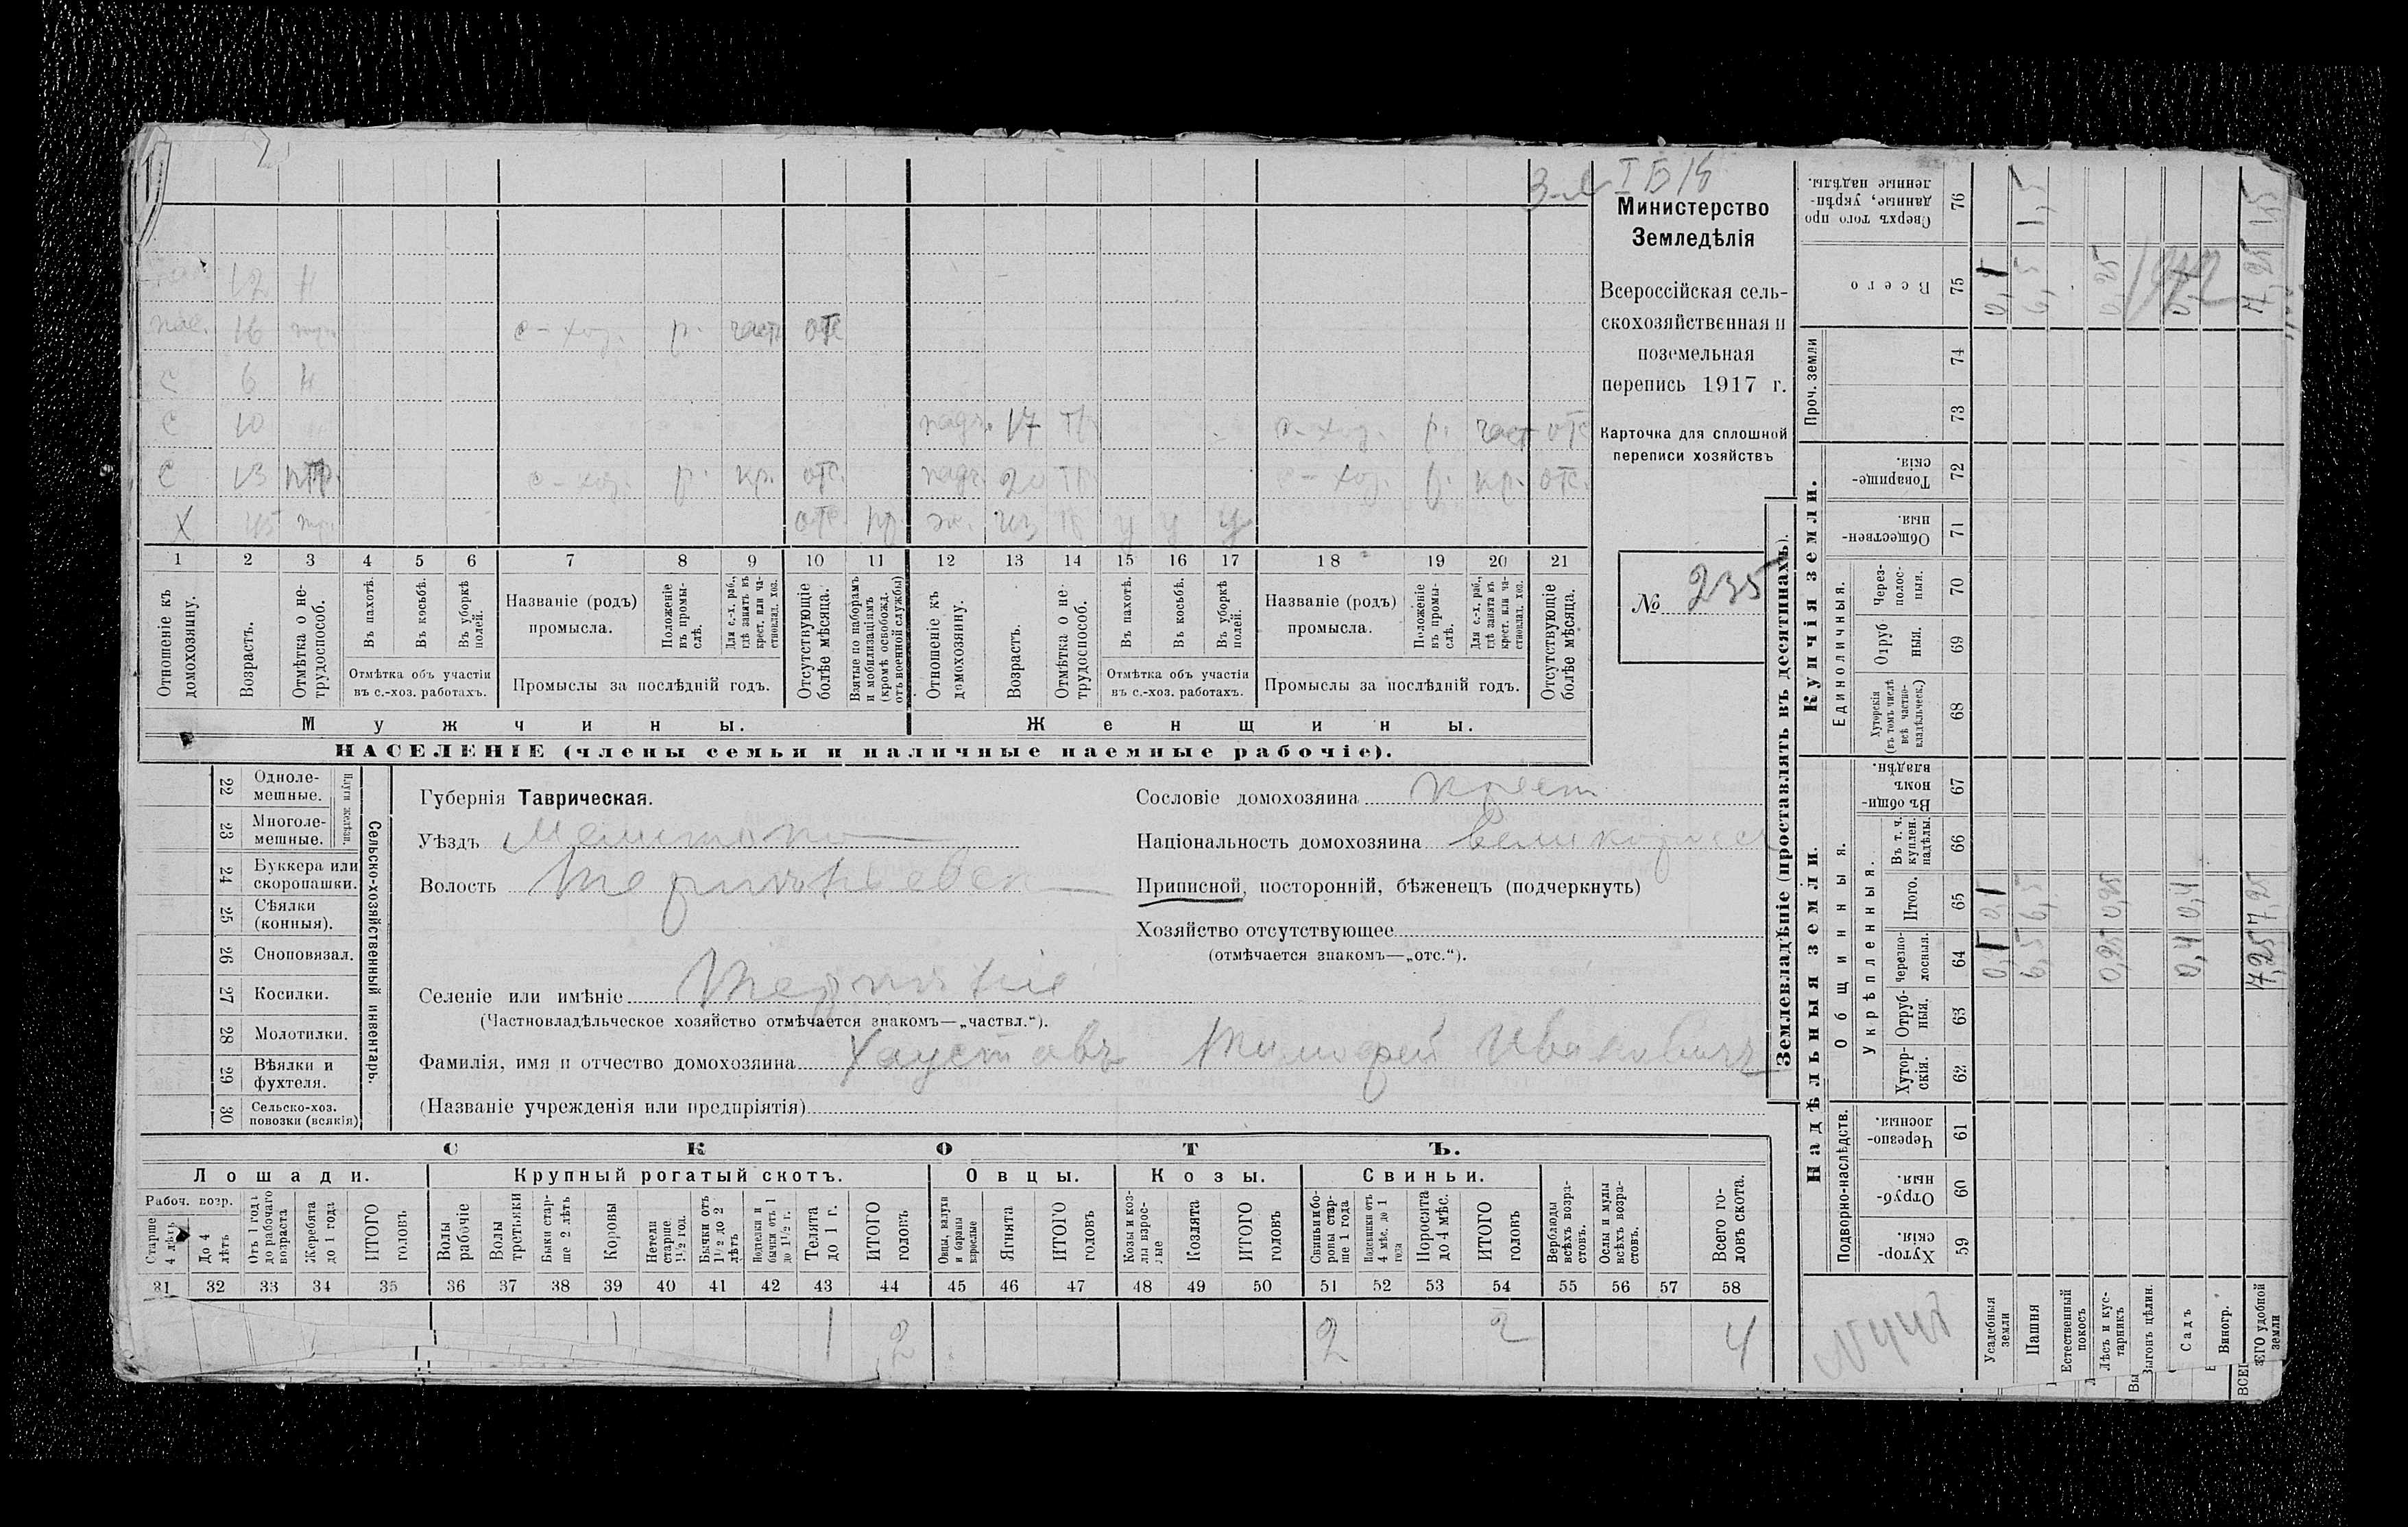 З-л I Б 18
Министерство
Земледѣлія
Всероссійская сель-
скохозяйственная и
поземельная
перепись 1917 г.
Карточка для сплошной
переписи хозяйствъ
№ 235
12 н
16 с-хоз. р. част отс
с 6 н
с 10 падч. 17 тр. с-хоз. р. част отс
с 13 птр. с-хоз. р. кр. отс. падч. 20 тр. с-хоз. р. кр. отс.
х 45 отс. пр. ж. 43 у у у
1 2 3 4 5 6 7 8 9 10 11 12 13 14 15 16 17 18 19 20 21
Отношеніе къ домохозяину.
Возрастъ.
Отмѣтка о не-трудоспособ.
Въ пахотѣ.
Въ косьбѣ.
Въ уборкѣ полей.
Отмѣтка объ участіи въ с.-хоз. работахъ.
Названіе (родъ) промысла.
Положеніе въ промы-слѣ.
Для с.-х. раб., гдѣ занятъ въ крест. или ча-стновлад. хоз.
Промыслы за послѣдній годъ.
Отсутствующіе болѣе мѣсяца.
Взятые по наборамъ и мобилизаціямъ (кромѣ освобожд. отъ военной службы)
Отношеніе къ домохозяину.
Возрастъ.
Отмѣтка о не-трудоспособ.
Въ пахотѣ.
Въ косьбѣ.
Въ уборкѣ полей.
Отмѣтка объ участіи въ с.-хоз. работахъ.
Названіе (родъ) промысла.
Положеніе въ промы-слѣ.
Для с.-х. раб., гдѣ занята въ крест. или ча-стновлад. хоз.
Промыслы за послѣдній годъ.
Отсутствующіе болѣе мѣсяца.
Мужчины. Женщины.
НАСЕЛЕНІЕ (члены семьи и наличные наемные рабочіе).
Сельско-хозяйственный инвентарь.
Плуги желѣзн.
22 Одноле-мешные.
23 Многоле-мешные.
24 Буккера или скоропашки.
25 Сѣялки (конныя).
26 Сноповязал.
27 Косилки.
28 Молотилки.
29 Вѣялки и фухтеля.
30 Сельско-хоз. повозки (всякія)
Губернія Таврическая.
Уѣздъ Мелитопо
Волость Терпѣніевск
Селеніе или имѣніе Терпѣніе
(Частновладѣльческое хозяйство отмѣчается знакомъ—„частвл.“).
Фамилія, имя и отчество домохозяина Хаустовъ Тимофей Ивановичъ
(Названіе учрежденія или предпріятія)
Сословіе домохозяина крест
Національность домохозяина Великорос
Приписной, посторонній, бѣженецъ (подчеркнуть)
Хозяйство отсутствующее
(отмѣчается знакомъ—„отс.“).
СКОТЪ.
Лошади. Крупный рогатый скотъ. Овцы. Козы. Свиньи.
Рабоч. возр.
Старше 4 лѣтъ
До 4 лѣтъ
Отъ 1 года до рабочаго возраста
Жеребята до 1 года
ИТОГО головъ
Волы рабочіе
Волы третьяки
Быки стар-ше 2 лѣтъ
Коровы
Нетели старше 1½ год.
Бычки отъ 1½ до 2 лѣтъ
Нетелки и бычки отъ 1 до 1½ г.
Телята до 1 г.
ИТОГО головъ
Овцы, валухи и бараны взрослые
Ягнята
ИТОГО головъ
Козы и коз-лы взрос-лые
Козлята
ИТОГО головъ
Свиньи и бо-ровы стар-ше 1 года
Подсвинки отъ 4 мѣс. до 1 года
Поросята до 4 мѣс.
ИТОГО головъ
Верблюды всѣхъ возра-стовъ.
Ослы и мулы всѣхъ возра-стовъ.
Всего го-ловъ скота.
31 32 33 34 35 36 37 38 39 40 41 42 43 44 45 46 47 48 49 50 51 52 53 54 55 56 57 58
1 1 2 2 2 4
Землевладѣніе (проставлять въ десятинахъ).
Надѣльныя земли. Купчія земли. Проч. земли
Подворно-наслѣдств. Общинныя. Укрѣпленныя. Единоличныя.
Хутор-скія. 59
Отруб-ныя. 60
Черезпо-лосныя. 61
Хутор-скія. 62
Отруб-ныя. 63
Черезпо-лосныя. 64
Итого. 65
Въ т. ч. куплен. надѣлы. 66
Въ общи-номъ владѣн. 67
Хуторскія (въ томъ числѣ всѣ частно-владѣльческ.) 68
Отруб ныя. 69
Через-полос-ныя. 70
Обществен-ныя. 71
Товарище-скія. 72
73
74
Всего 75
Сверхъ того про данные, укрѣп-ленные надѣлы. 76
Усадебныя земли 0,1 0,1 0,1
Пашня 6,5 6,5 6,5 1,5
Естественный покосъ
Лѣсъ и кус-тарникъ 0,25 0,25 0,25
Выгонъ цѣлин.
Садъ 0,4 0,4
Виногр.
ЕГО удобной земли 7,25 7,25 7,25 1,5
ВСЕГ